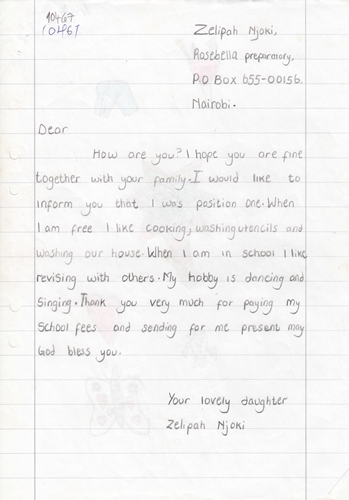 10467
10461
Zelipah Njoki,
Rosebella preparatory,
P.O Box 655-00156.
Nairobi.
Dear
How are you? I hope you are fine
together with your family. I would like to
inform you that I was position one. When
I am free I like cooking, washing utencils and
washing our house. When I am in school I like
revising with others. My hobby is dancing and
singing. Thank you very much for paying my
school fees and sending for me present may
God bless you.
Your lovely daughter
Zelipah Njoki